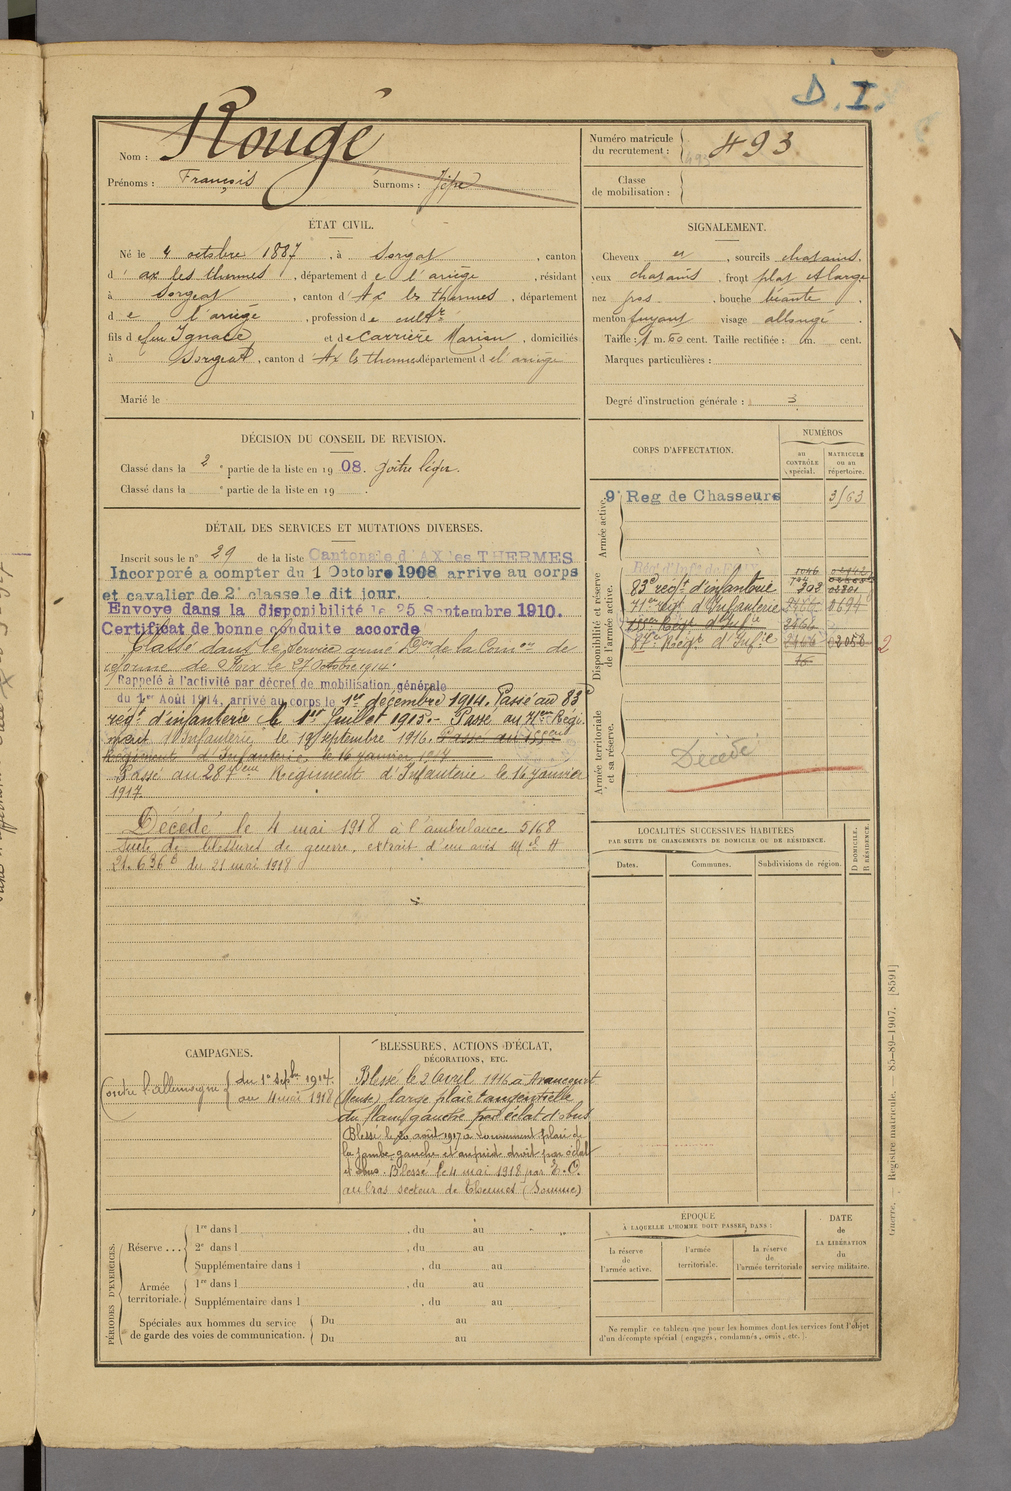 D. I.
Nom : Rougé
Prénoms : François Surnoms :
Numéro matricule
du recrutement : 493
Classe
de mobilisation :
ÉTAT CIVIL.
Né le 4 octobre 1887, à Sorgeat, canton
d'ax les thermes, département de l'ariège, résidant
à Sorgeat, canton d'Ax les thermes, département
de l'ariège, profession de cultr
fils de feu Ignace et de Carrière Marion, domiciliés
à Sorgeat, canton d'Ax ls thermes département de l'ariège
Marié le
SIGNALEMENT.
Cheveux et, sourcils chatains,
yeux chatains, front plat et large
nez gros, bouche béante,
menton fuyant visage allongé.
Taille : 1 m. 60 cent. Taille rectifiée : m. cent.
Marques particulières :
Degré d'instruction générale : 3
DÉCISION DU CONSEIL DE REVISION.
Classé dans la 2e partie de la liste en 1908. goître léger.
Classé dans la e partie de la liste en 19 .
DÉTAIL DES SERVICES ET MUTATIONS DIVERSES.
Inscrit sous le n° 29 de la liste Cantonale d'AX les THERMES
Incorporé a compter du 1 Octobre 1908 arrive au corps
et cavalier de 2e classe le dit jour.
Envoye dans la disponibilité le 25 Septembre 1910.
Certificat de bonne conduite accorde
Classé dans le service armé Don de la Comon de
réforme de Foix le 27 octobre 1914.
Rappelé à l'activité par décret de mobilisation générale
du 1er Août 1914, arrivé au corps le 1er décembre 1914. Passé au 83e
régt d'infanterie le 1er Juillet 1915.- Passé au 71eme Régi-
ment d'Infanterie le 19 septembre 1916. Passé au 155eme
Régiment d'Infanterie, le 16 janvier 1917
Passé au 287eme Régiment d'Infanterie le 16 janvier
1917.
Décédé le 4 mai 1918 à l'ambulance 5/68
suite de blessures de guerre, extrait d'un avis
21.636 du 21 mai 1918
CORPS D'AFFECTATION.
NUMÉROS
au
CONTRÔLE
spécial.
MATRICULE
ou au
répertoire.
Armée active.
9e Reg de Chasseurs 3163
Disponibilité et réserve
de l'armée active.
83e régt d'infanterie 303
71eme régt d'Infanterie
155eme Régt d'Infie
87e Régt d'Infie 02058
2
Armée territoriale
et sa réserve.
Décédé
LOCALITÉS SUCCESSIVES HABITÉES
PAR SUITE DE CHANGEMENTS DE DOMICILE OU DE RÉSIDENCE.
Dates. Communes. Subdivisions de région.
D DOMICILE.
R RÉSIDENCE.
CAMPAGNES.
Contre l'allemagne du 1er Septbre 1914.
au 4 mai 1918
BLESSURES, ACTIONS D'ÉCLAT,
DÉCORATIONS, ETC.
Blessé le 2 avril 1916 à Avaucourt
(Meuse) large plaie tangentielle
du flanc gauche par éclat d'obus
Blessé le 20 août 1917 à Louvemont plaie de
la jambe gauche et au pied droit par éclat
d'obus. Blessé le 4 mai 1918 par E.O.
au bras secteur de Thennes (Somme)
PÉRIODES D'EXERCICES.
Réserve ... 1re dans l , du au
2e dans l , du au
Supplémentaire dans l , du au
Armée
territoriale. 1re dans l , du au
Supplémentaire dans l , du au
Spéciales aux hommes du service
de garde des voies de communication. Du au
Du au
ÉPOQUE
À LAQUELLE L'HOMME DOIT PASSER DANS :
la réserve
de
l'armée active.
l'armée
territoriale.
la réserve
de
l'armée territoriale
DATE
de
LA LIBÉRATION
du
service militaire.
Ne remplir ce tableau que pour les hommes dont les services font l'objet
d'un décompte spécial (engagés, condamnés, omis, etc.).
Guerre. — Registre matricule. — 85-89-1907. [8591]